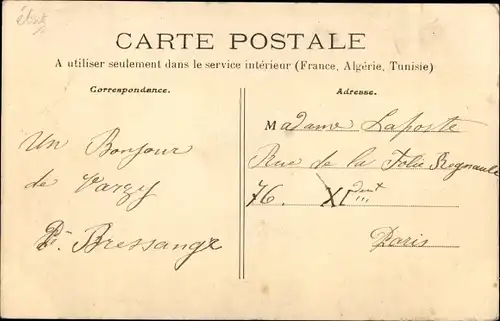 CARTE POSTALE
A utiliser seulement dans le service intérieur (France, Algérie, Tunisie)
Correspondance.
Un Bonjour
de Varzy
Bressange
Adresse.
Madame Laposte
Rue de la Folie Regnault
76. XI
Paris